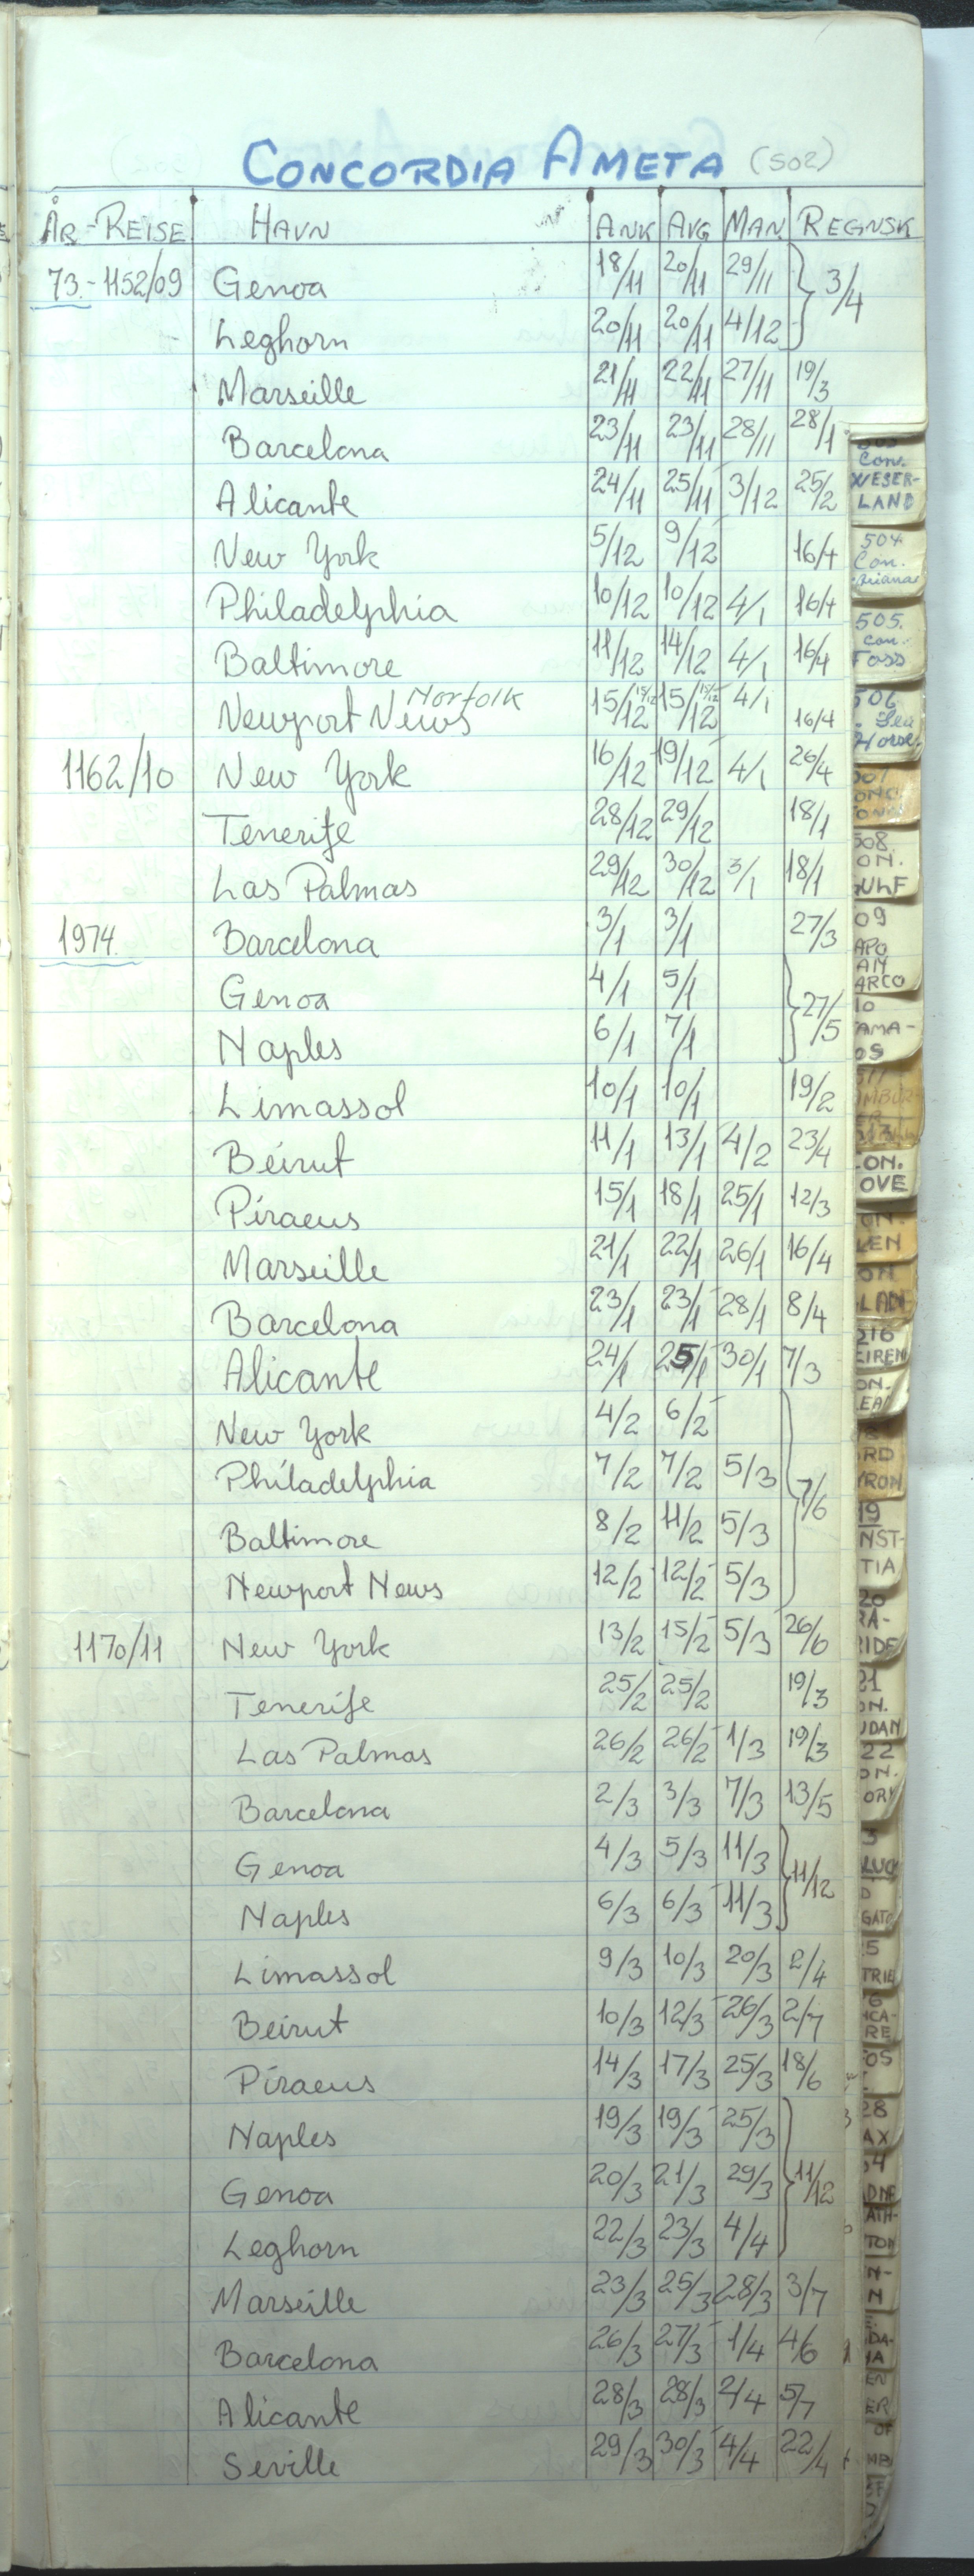 CONCORDIA AMETA (502)
ÅR-REISE HAVN ANK AVG MAN REGNSK
73.-1152/09 Genoa 18/11 20/11 29/11 3/4
Leghorn 20/11 20/11 4/12
Marseille 21/11 22/11 27/11 19/3
Barcelona 23/11 23/11 28/11 28/1
Alicante 24/11 25/11 3/12 25/2
New York 5/12 9/12 16/4
Philadelphia 10/12 10/12 4/1 16/4
Baltimore 11/12 14/12 4/1 16/4
Norfolk
Newport News 15/12 15/12 15/12 15/12 4/1 16/4
1162/10 New York 16/12 19/12 4/1 26/4
Tenerife 28/12 29/12 18/1
Las Palmas 29/12 30/12 3/1 18/1
1974. Barcelona 3/1 3/1 27/3
Genoa 4/1 5/1 27/5
Naples 6/1 7/1
Limassol 10/1 10/1 19/2
Beirut 11/1 13/1 4/2 23/4
Piraeus 15/1 18/1 25/1 12/3
Marseille 21/1 22/1 26/1 16/4
Barcelona 23/1 23/1 28/1 8/4
Alicante 24/1 25/1 30/1 7/3
New York 4/2 6/2
Philadelphia 7/2 7/2 5/3 7/6
Baltimore 8/2 11/2 5/3
Newport News 12/2 12/2 5/3
1170/11 New York 13/2 15/2 5/3 26/6
Tenerife 25/2 25/2 19/3
Las Palmas 26/2 26/2 1/3 19/3
Barcelona 2/3 3/3 7/3 13/5
Genoa 4/3 5/3 11/3 11/12
Naples 6/3 6/3 11/3
Limassol 9/3 10/3 20/3 2/4
Beirut 10/3 12/3 26/3 2/7
Piraeus 14/3 17/3 25/3 18/6
Naples 19/3 19/3 25/3
Genoa 20/3 21/3 29/3 11/12
Leghorn 22/3 23/3 4/4
Marseille 23/3 25/3 28/3 3/7
Barcelona 26/3 27/3 1/4 4/6
Alicante 28/3 28/3 2/4 5/7
Seville 29/3 30/3 4/4 22/4
Con.
WESER-
LAND
504
Con.
505.
con.
Foss
506
Sea
Horse
508
ON.
09
APO
ARCO
10
AMA-
OS
ON.
OVE
LEN
LAN
516
EIREN
ON.
LEA
RD
YRON
19
NST-
TIA
20
RA-
RIDE
21
ON.
UDAN
22
ON.
ORY
LUCK
GATO
5
TRIE
6
ICA-
RE
OS
28
AX
TON
N-
N
DA-
IA
ER
ER
OF